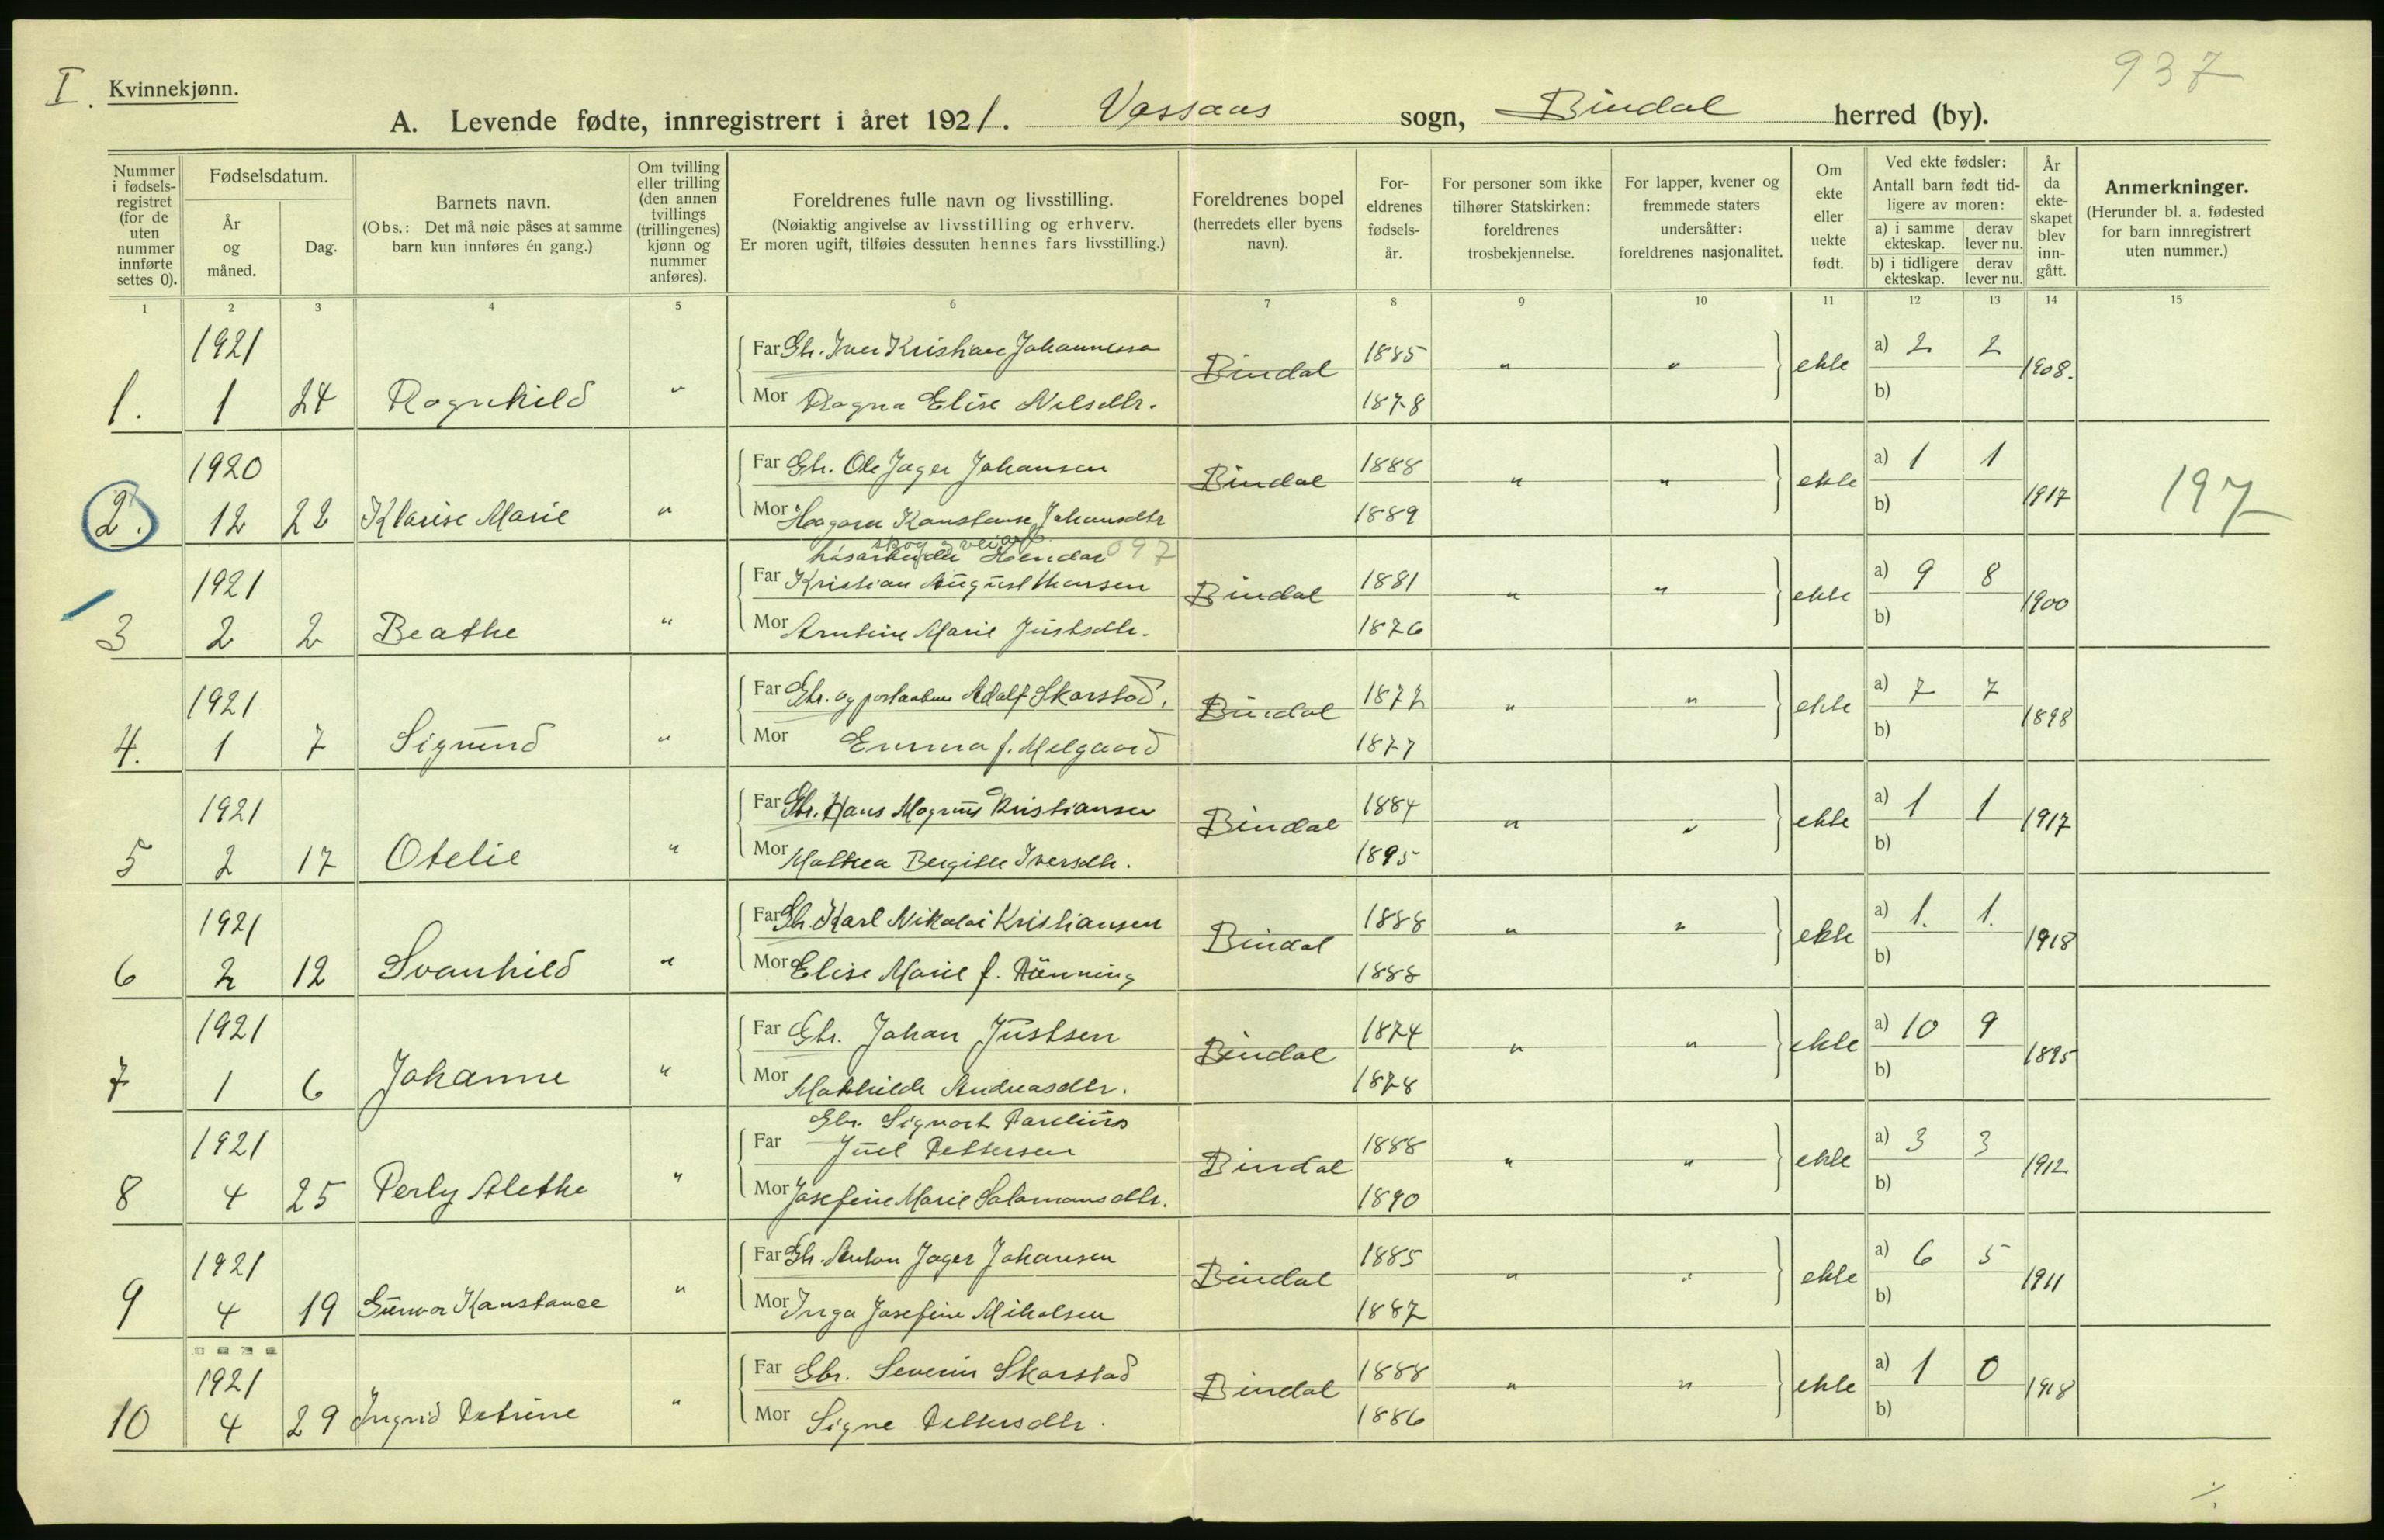 I. Kvinnekjønn.
937
A. Levende fødte, innregistrert i året 1921. Vassaas sogn, Bindal herred (by).
Nummer i fødsels-registret (for de uten nummer innførte settes 0).
Fødselsdatum.
År og måned.
Dag.
Barnets navn.
(Obs.: Det må nøie påses at samme barn kun innføres én gang.)
Om tvilling eller trilling (den annen tvillings (trillingenes) kjønn og nummer anføres).
Foreldrenes fulle navn og livsstilling.
(Nøiaktig angivelse av livsstilling og erhverv. Er moren ugift, tilføies dessuten hennes fars livsstilling.)
Foreldrenes bopel (herredets eller byens navn).
For-eldrenes fødsels-år.
For personer som ikke tilhører Statskirken: foreldrenes trosbekjennelse.
For lapper, kvener og fremmede staters undersåtter: foreldrenes nasjonalitet.
Om ekte eller uekte født.
Ved ekte fødsler: Antall barn født tid-ligere av moren:
a) i samme ekteskap.
derav lever nu.
b) i tidligere ekteskap.
derav lever nu.
År da ekte-skapet blev inn-gått.
Anmerkninger.
(Herunder bl. a. fødested for barn innregistrert uten nummer.)
1 2 3 4 5 6 7 8 9 10 11 12 13 14 15
1921 Far Gbr. Iver Kristian Johannessen 1885 a) 2 2
1. 1 24 Ragnhild " Bindal " " ekte 1908.
Mor Ragna Elise Nilsdtr. 1878 b)
1920 Far Gbr. Ole Jager Johansen 1888 a) 1 1
2. 12 22 Klarise Marie " Bindal " " ekte 1917 197
Mor Konstanse Johansdtr 1889 b)
097
1921 Far Kristian August Hansen 1881 a) 9 8
3 2 2 Beathe " Bindal " " ekte 1900
Mor Arntine Marie Justsdtr. 1876 b)
1921 Far Gbr. og Adolf Skarstad. 1872 a) 7 7
4. 1 7 Sigrund " Bindal " " ekte 1898
Mor Emma f. Melgaard 1877 b)
1921 Far Gbr. Hans Magnus Kristiansen 1884 a) 1 1
5 2 17 Otelie " Bindal " " ekte 1917
Mor Mathea Bergitte Iversdtr. 1895 b)
1921 Far Gbr. Karl Nikolai Kristiansen 1888 a) 1. 1.
6 2 12 Svanhild " Bindal " " ekte 1918
Mor Elise Marie f. Rönning 1888 b)
1921 Far Gbr. Johan Justsen 1874 a) 10 9
7 1 6 Johanne " Bindal " " ekte 1895
Mor Mathilde Andreasdtr. 1878 b)
Gbr. Sigvart Parelius
1921 Far Juel Pettersen 1888 a) 3 3
8 4 25 Perly Alethe " Bindal " " ekte 1912
Mor Josefine Marie Salamonsdtr. 1890 b)
1921 Far Gbr. Anton Jager Johansen 1885 a) 6 5
9 4 19 Gunvor Konstance " Bindal " " ekte 1911
Mor Inga Josefine Mikalsen 1887 b)
1921 Far Gbr. Severin Skarstad 1888 a) 1 0
10 4 29 Ingrid Petrine " Bindal " " ekte 1918
Mor Signe Pettersdtr. 1886 b)